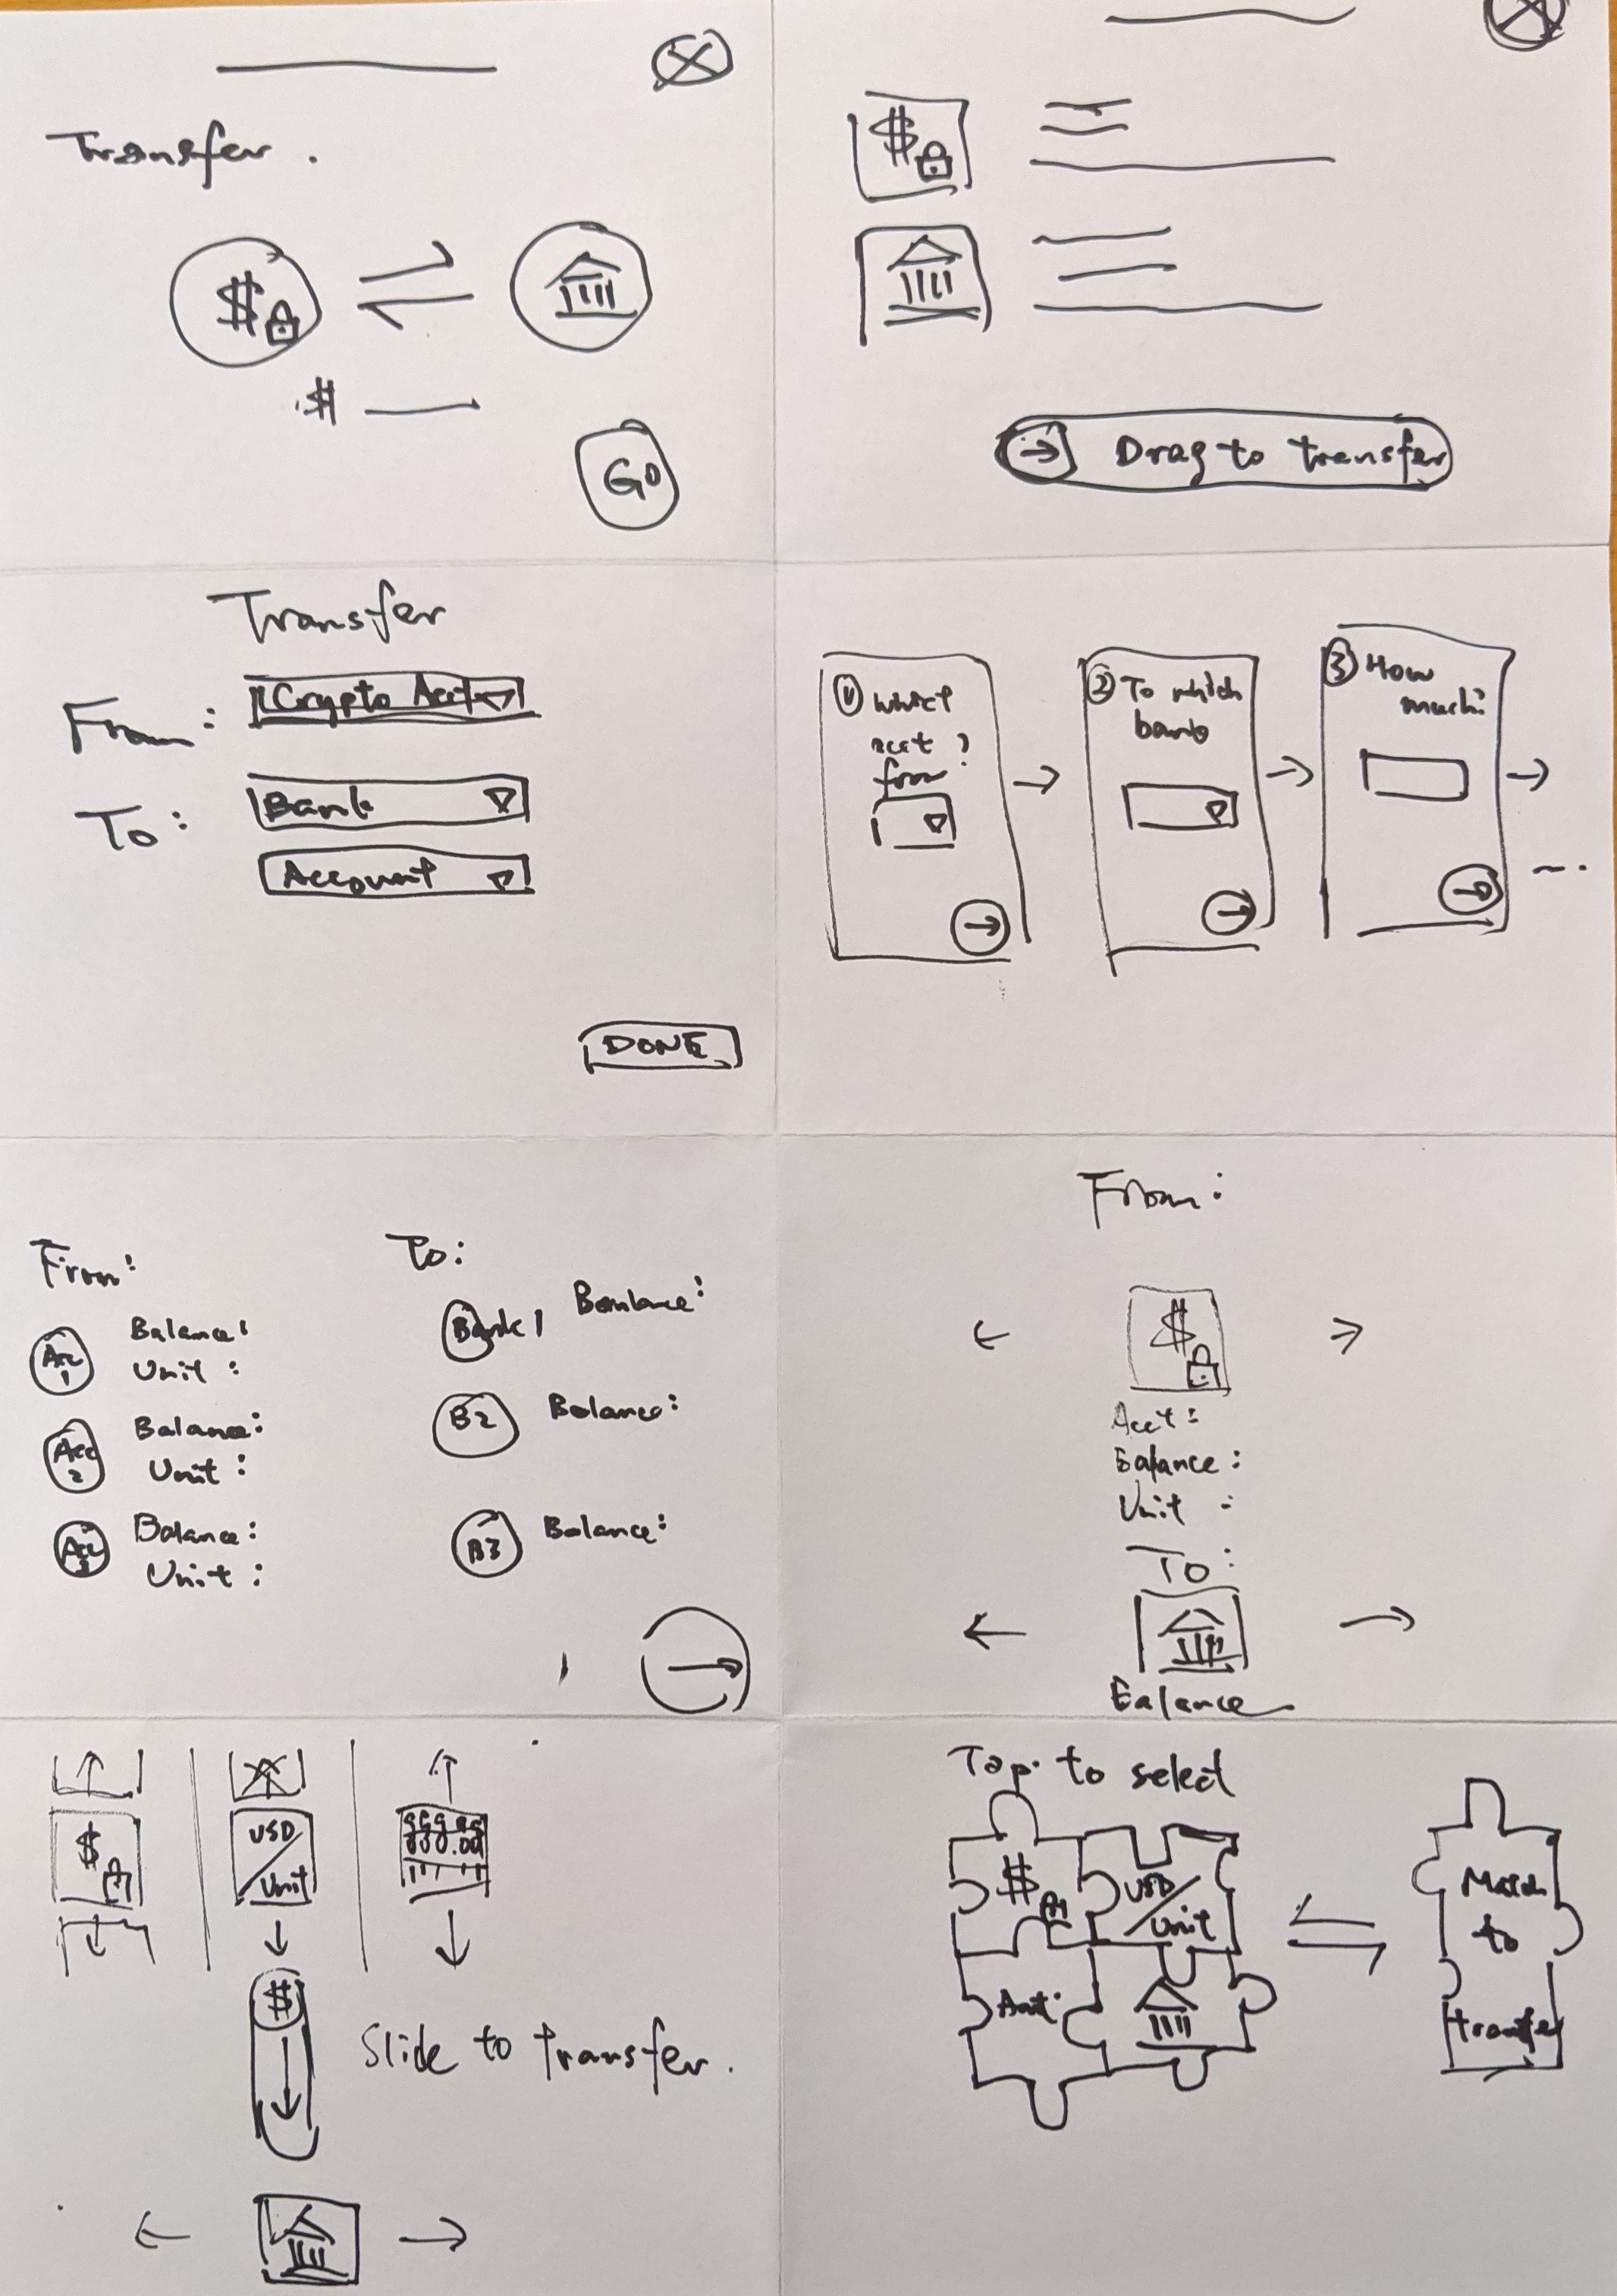 Transfer.
$
$
GO
$
Drag to transfer
Transfer
From:
Crypto Acct
To:
Bank
Account
DONE
① which
acct
from?
② To which
bank
③ How
much?
From:
Acc
1
Balance:
Unit:
Acc
2
Balance:
Unit:
Acc
3
Balance:
Unit:
To:
Bank 1
B2
Balance:
B3
Balance:
From:
$
Acct:
Balance:
Unit:
To:
Balance
$
USD
/Unit
$
Slide to transfer.
Tap to select
$
USD
/Unit
Match
to
transfer